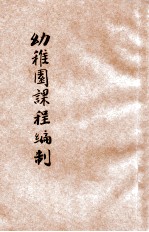 幼稚園課程編制